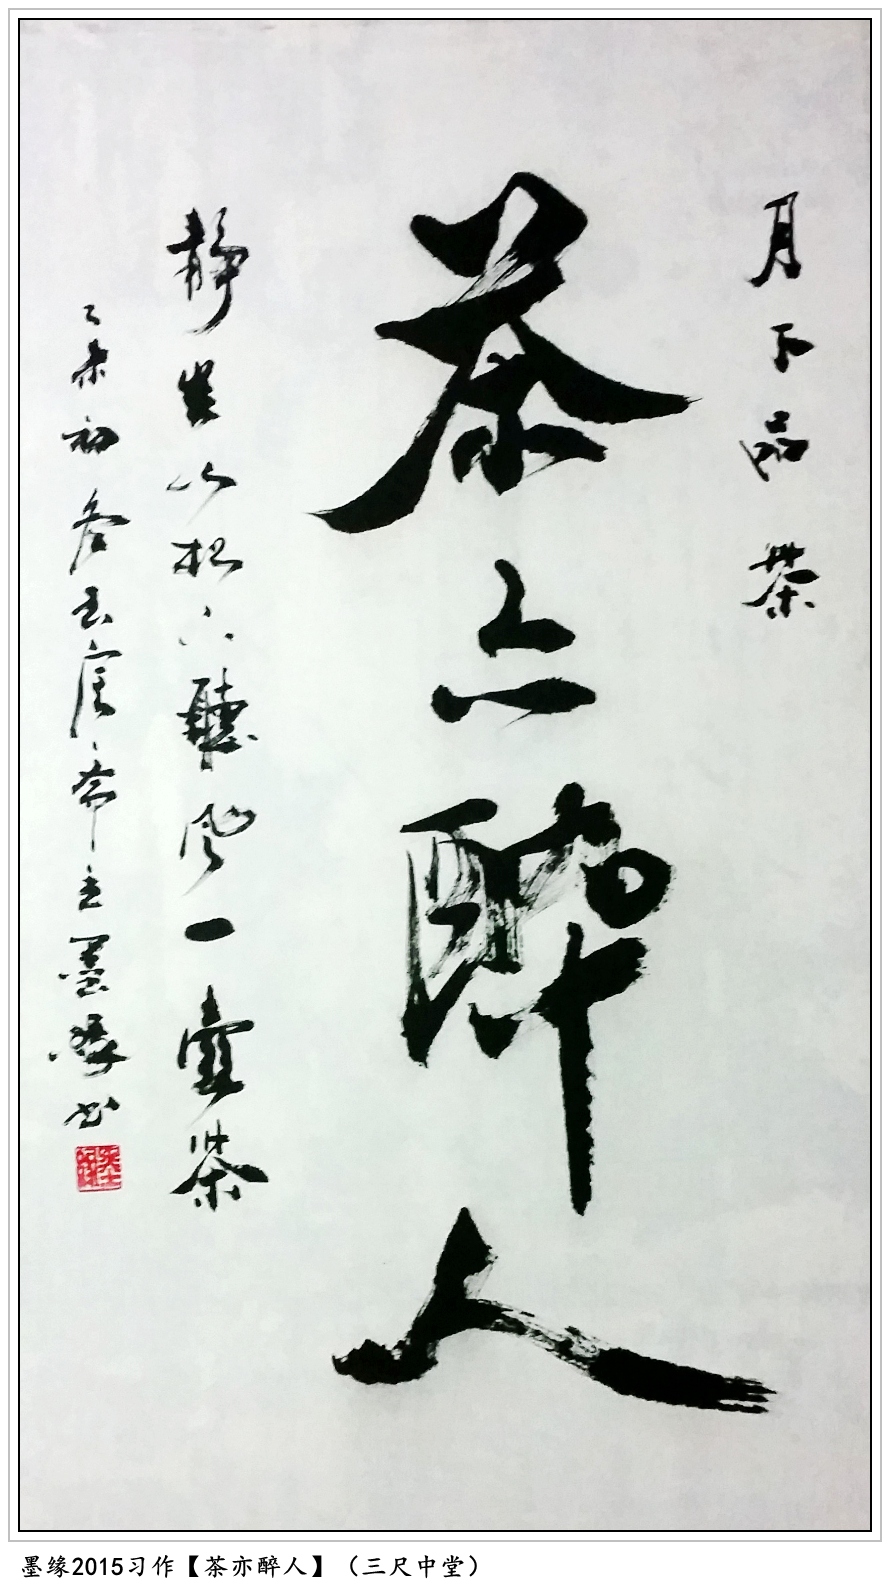 月下品茶
茶亦醉人
静坐以松下聽风一壶茶
乙未初冬玉宝斋主墨缘书
墨缘
墨缘2015习作【茶亦醉人】（三尺中堂）